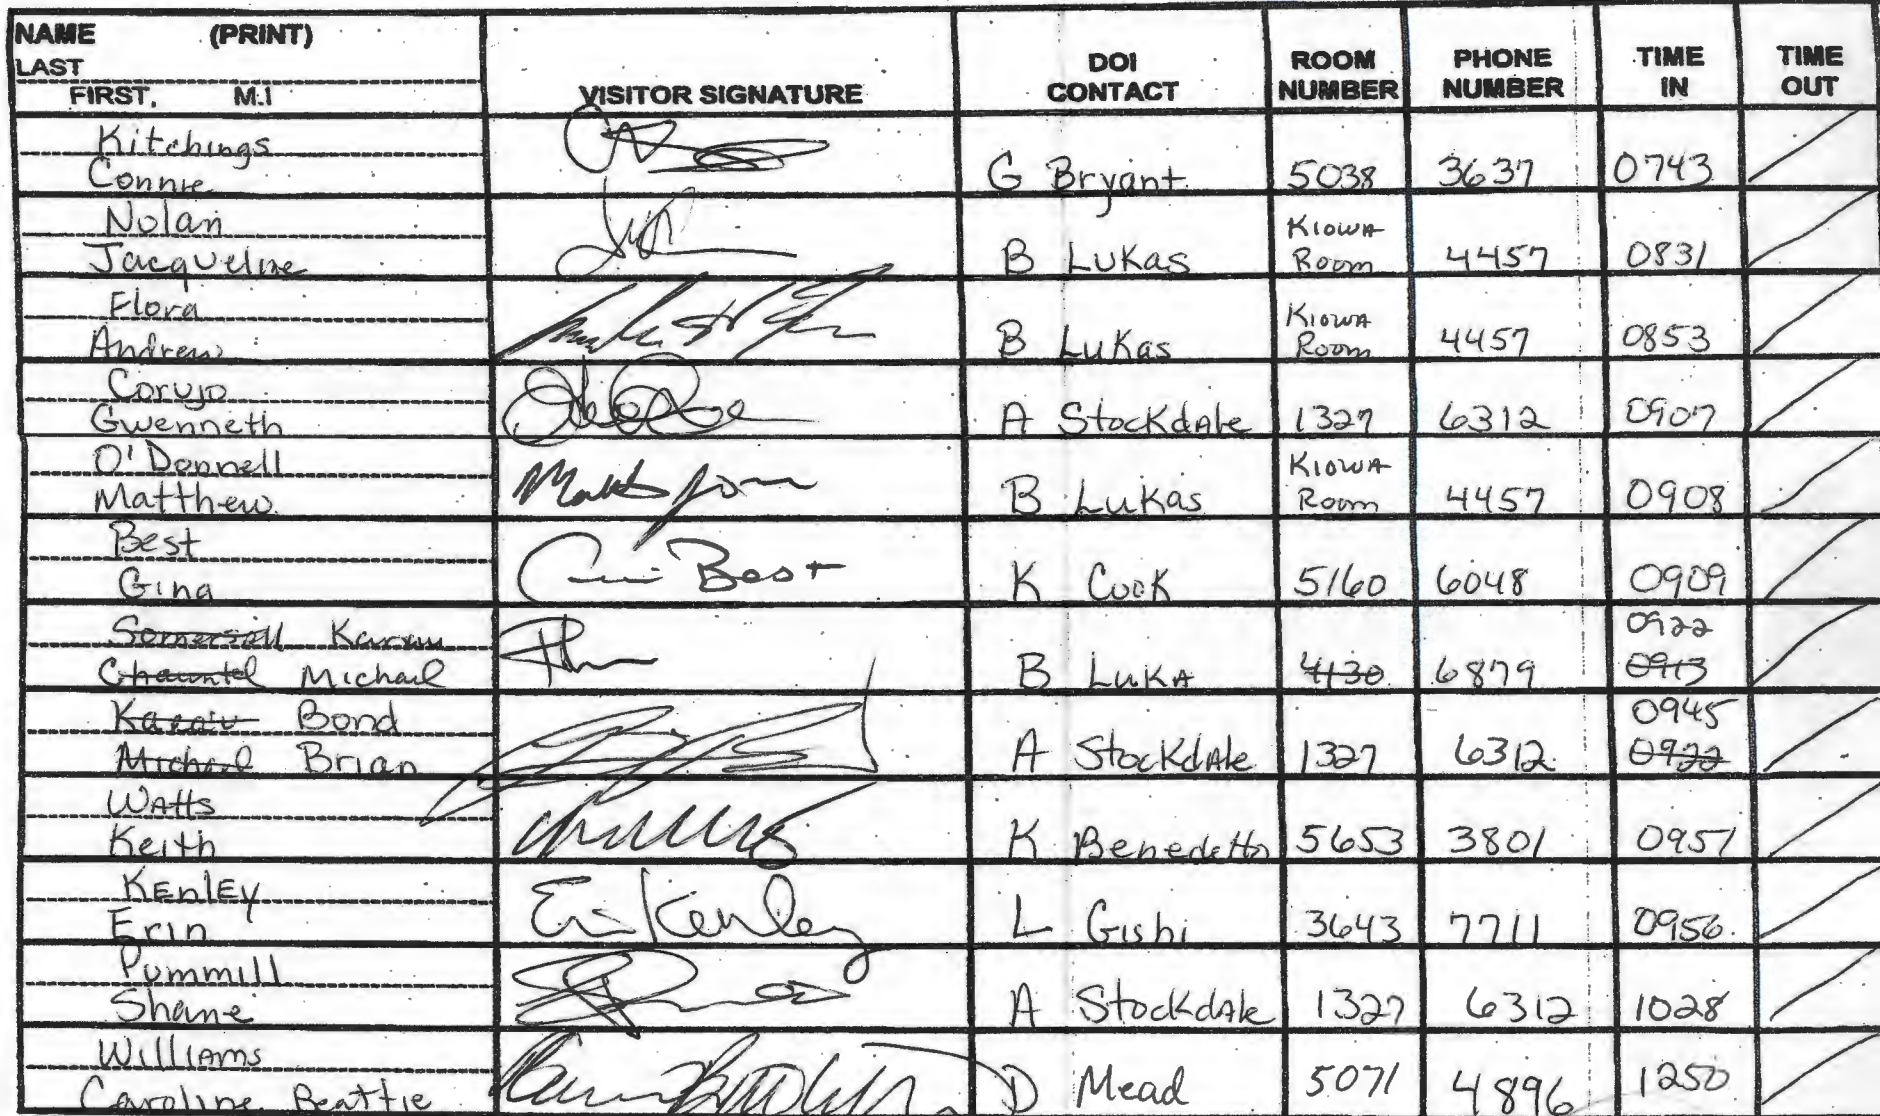 NAME (PRINT)
LAST
FIRST, M.I
VISITOR SIGNATURE
DOI CONTACT
ROOM NUMBER
PHONE NUMBER
TIME IN
TIME OUT
Kitchings
Connie G Bryant 5038 3637 0743
Nolan Kiowa
Jacqueline B Lukas Room 4457 0831
Flora Kiowa
Andrew B Lukas Room 4457 0853
Corujo
Gwenneth A Stockdale 1327 6312 0907
O'Donnell Kiowa
Matthew B Lukas Room 4457 0908
Best
Gina Best K Cook 5160 6048 0909
Somersall 0922
Chauntel Michael B Luka 4130 6879 0913
Bond 0945
Michael Brian A Stockdale 1327 6312 0922
Watts
Keith K Benedetto 5653 3801 0957
Kenley
Erin Eri Kenley L Gishi 3643 7711 0956
Pummill
Shane A Stockdale 1327 6312 1028
Williams
Caroline Beattie D Mead 5071 4896 1250